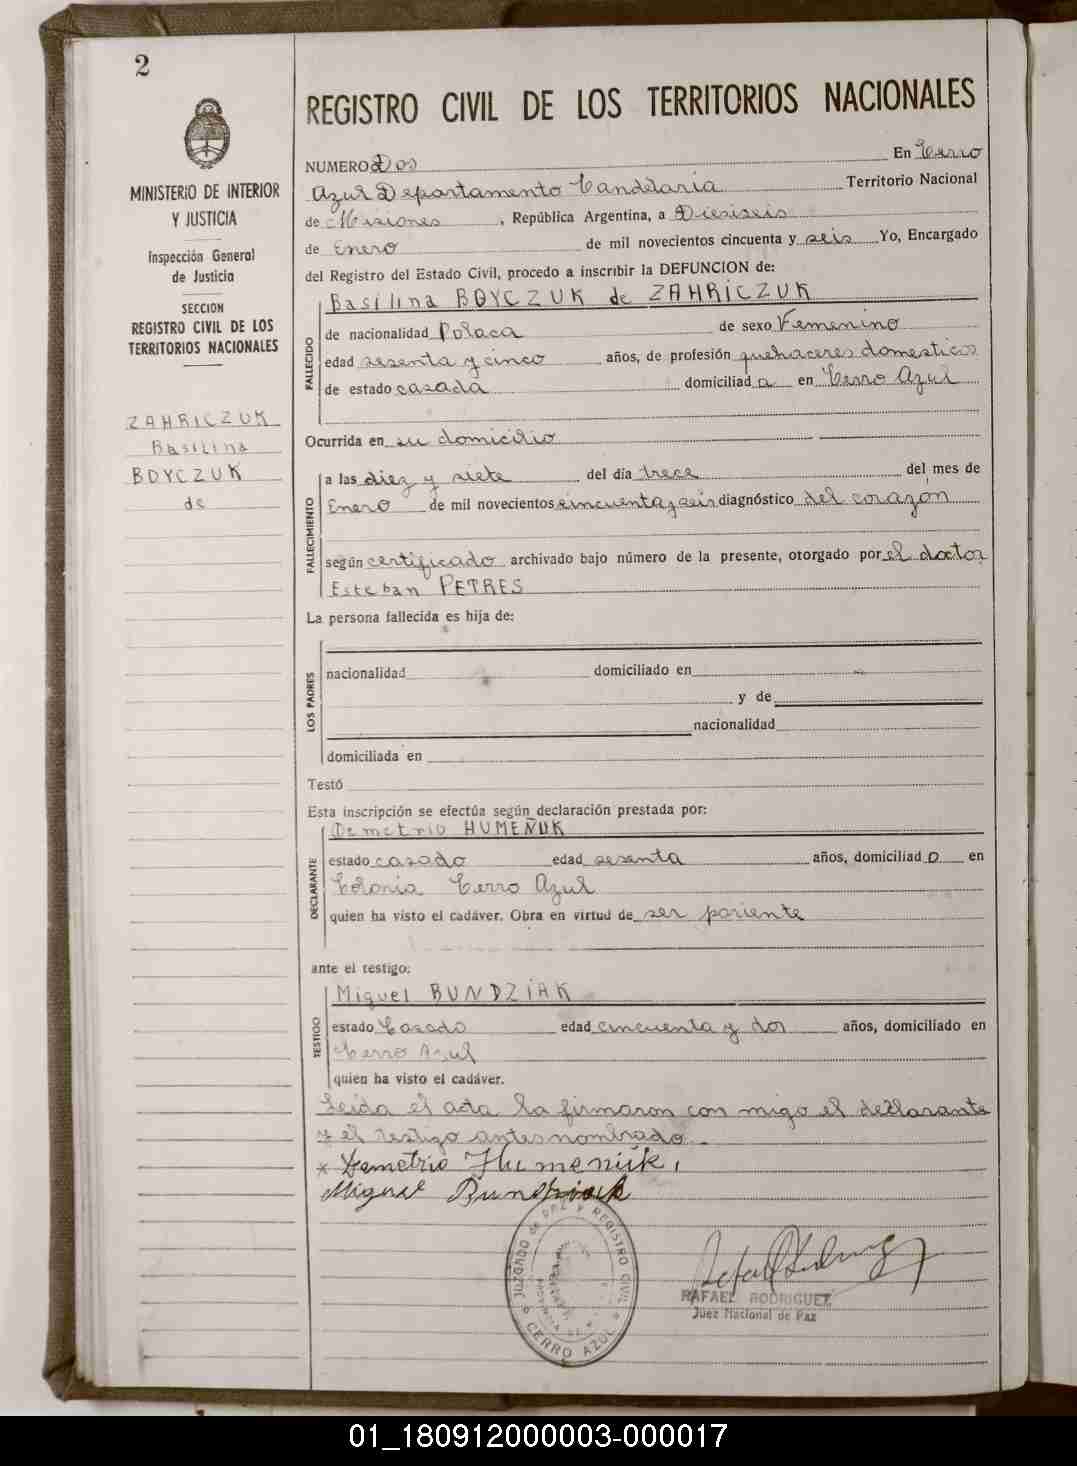 2
MINISTERIO DE INTERIOR
Y JUSTICIA
Inspección General
de Justicia
SECCION
REGISTRO CIVIL DE LOS
TERRITORIOS NACIONALES
ZAHRICZUK
Basilina
BOYCZUK
de
REGISTRO CIVIL DE LOS TERRITORIOS NACIONALES
NUMERO Dos En Cerro
Azul Departamento Candelaria Territorio Nacional
de Misiones, República Argentina, a Dieciseis
de Enero de mil novecientos cincuenta y seis Yo, Encargado
del Registro del Estado Civil, procedo a inscribir la DEFUNCION de:
Basilina BOYCZUK de ZAHRICZUK
FALLECIDO
de nacionalidad Polaca de sexo Femenino
edad sesenta y cinco años, de profesión quehaceres domesticos
de estado casada domiciliada en Cerro Azul
Ocurrida en su domicilio
FALLECIMIENTO
a las diez y siete del día trece del mes de
Enero de mil novecientos cincuenta y seis diagnóstico del corazon
según certificado archivado bajo número de la presente, otorgado por el doctor
Esteban PETRES
La persona fallecida es hija de:
LOS PADRES
nacionalidad domiciliado en
y de
nacionalidad
domiciliada en
Testó
Esta inscripción se efectúa según declaración prestada por:
Demetrio HUMEÑUK
DECLARANTE
estado casado edad sesenta años, domiciliado en
Colonia Cerro Azul
quien ha visto el cadáver. Obra en virtud de ser pariente
ante el testigo:
Miguel BUNDZIAK
TESTIGO
estado Casado edad cincuenta y dos años, domiciliado en
Cerro Azul
quien ha visto el cadáver.
Leida el acta la firmaron con migo el declarante
y el testigo antes nombrado
x Demetrio Humeniuk,
Miguel Bundziack
JUZGADO de PAZ Y REGISTRO CIVIL
CERRO AZUL
RAFAEL RODRIGUEZ
Juez Nacional de Paz
01_180912000003-000017